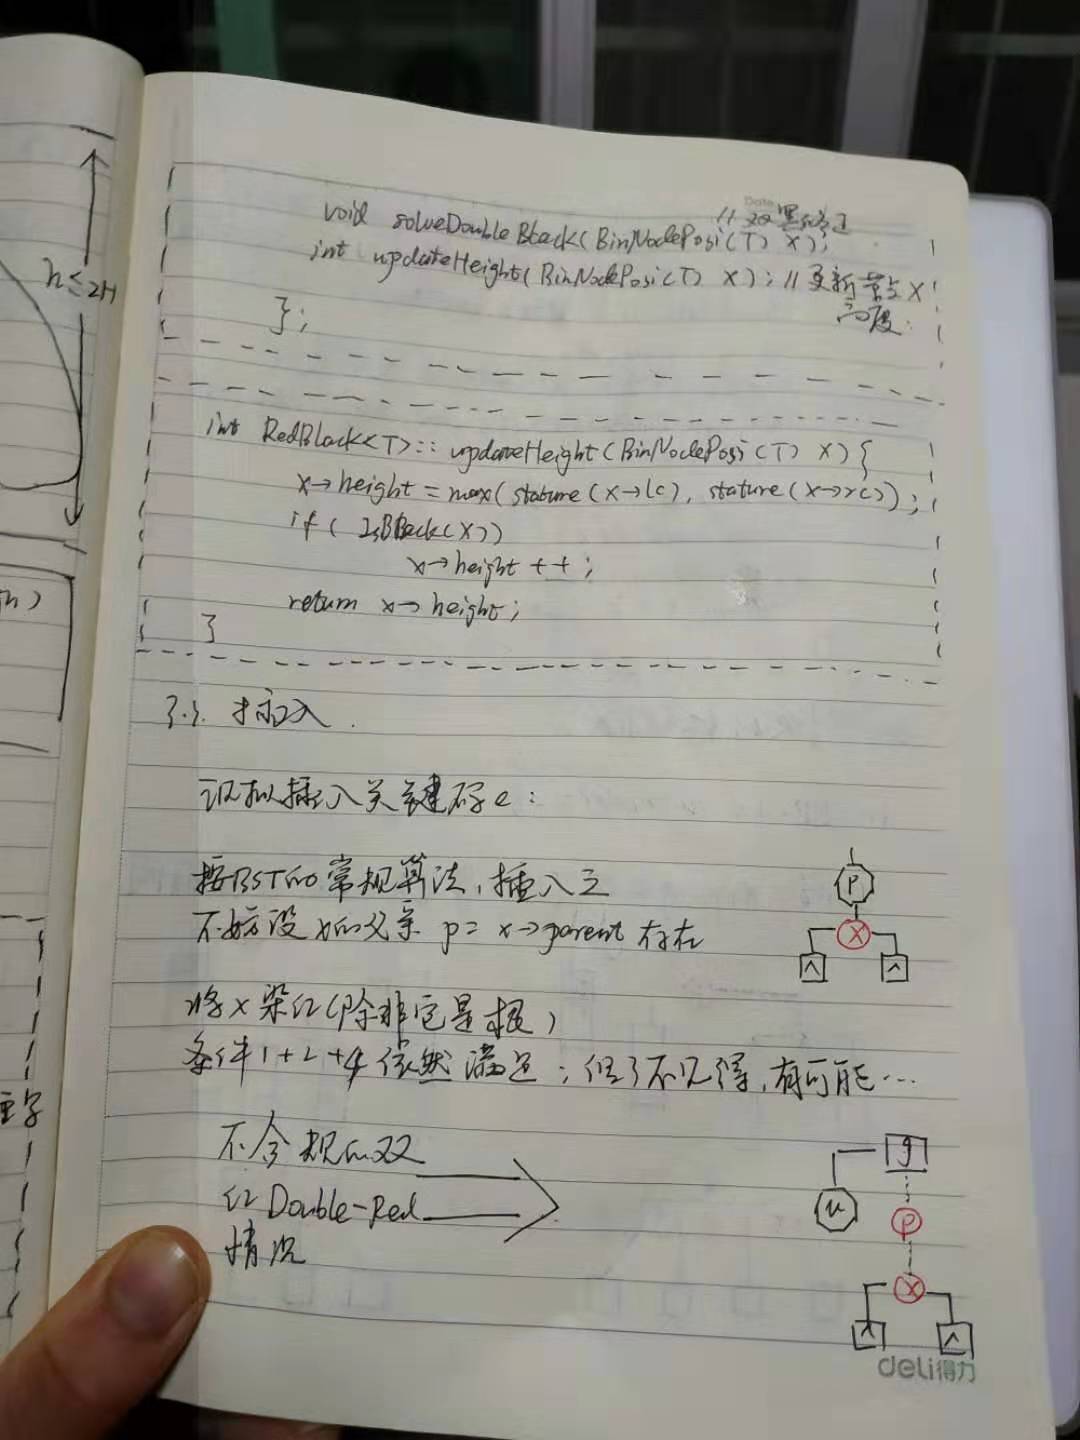 h≤2H
Date
//双黑修正
void solveDoubleBlack(BinNodePosi(T) x);
int updateHeight(BinNodePosi(T) x); //更新节点x
高度.
};
int RedBlack<T>::updateHeight(BinNodePosi(T) x){
x→height=max(stature(x→lc), stature(x→rc));
if( IsBlack(x))
x→height++;
return x→height;
}
3.3. 插入.
现拟插入关键码e:
按BST的常规算法,插入之
不妨设x的父亲 p= x→parent 存在
P
X
将x染红(除非它是根)
条件1+2+4依然满足;但3不见得,有可能…
不合规的双
红Double-Red
情况
g
u
p
x
deli得力